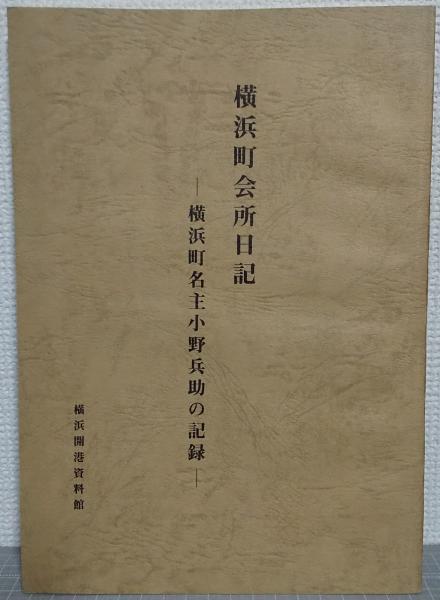 横浜町会所日記
―横浜町名主小野兵助の記録―
横浜開港資料館